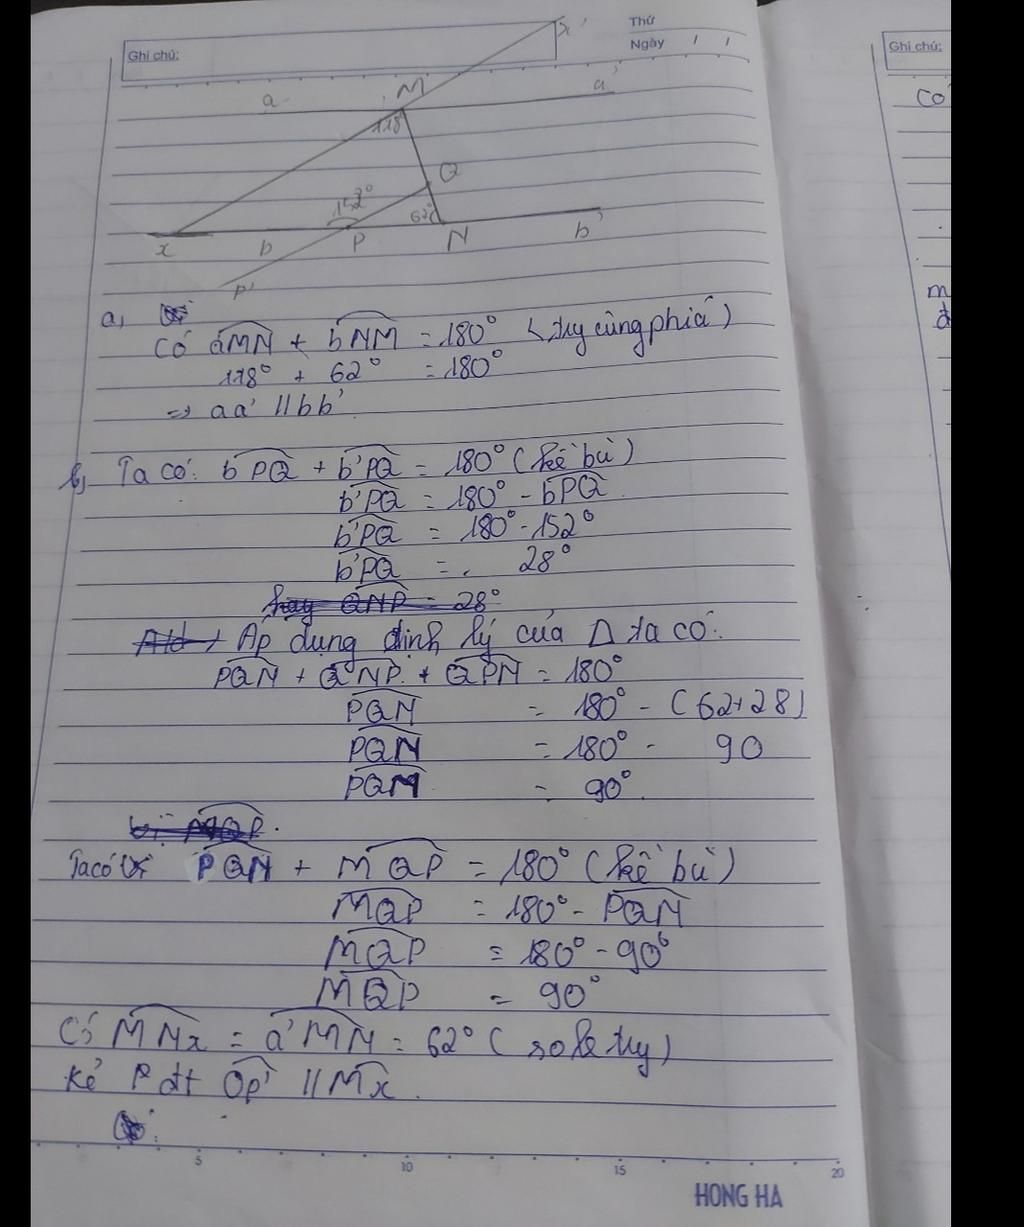 Thứ
Ngày / /
Ghi chú:
Ghi chú:
x'
a M a'
118°
Q
152°
62°
x b P N b'
P'
a,
Có aMN + bNM = 180° (trg cùng phía)
118° + 62° = 180°
=> aa' // bb'
b, Ta có: bPQ + b'PQ = 180° (kề bù)
b'PQ = 180° - bPQ
b'PQ = 180° - 152°
b'PQ = 28°
hay QNP = 28°
Áp dụng định lý của Δ ta có:
PQN + QNP + QPN = 180°
PQN = 180° - (62+28)
PQN = 180° - 90
PQN = 90°
MQP.
Ta có PQN + MQP = 180° (kề bù)
MQP = 180° - PQN
MQP = 180° - 90°
MQP = 90°
Có MNx = a'MN = 62° (so le trg)
Kẻ P đt Qp' // Mx.
có
m
đ
5 10 15 20
HONG HA